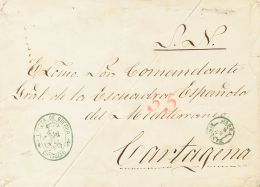 S. N.
Exmo. Sor. Comandante
Gral. de la Escuadra Española
del Mediterraneo
Cartagena